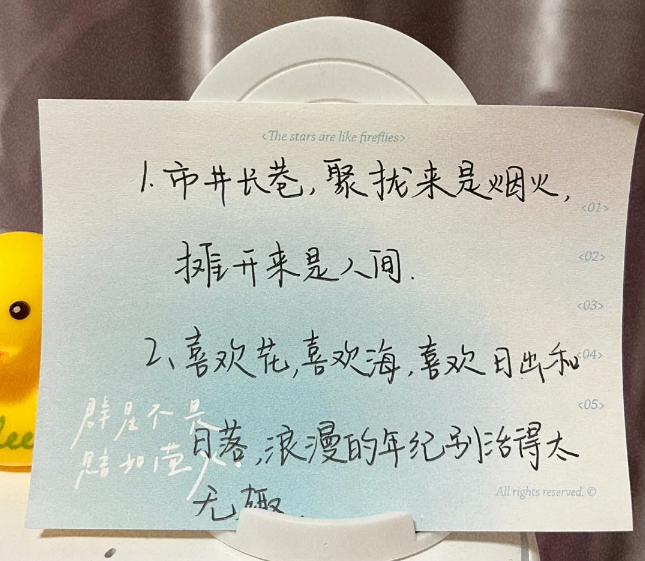 <The stars are like fireflies>
1.市井长巷,聚拢来是烟火,
<01>
摊开来是人间.
<02>
<03>
2、喜欢花,喜欢海,喜欢日出和
<04>
<05>
群星不是
日落,浪漫的年纪别活得太
无趣.
All rights reserved. ©